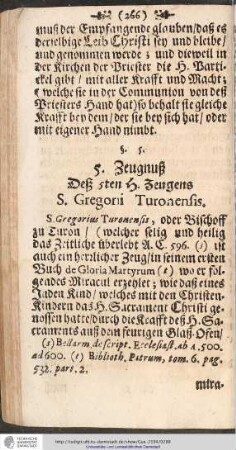 (266)
muß der Empfangende glauben/daß es
derselbige Leib Christi sey und bleibe/
und genommen werde; und dieweil in
der Kirchen der Priester die H. Parti-
ckel gibt/ mit aller Krafft und Macht
(welche sie in der Communion von deß
Priesters Hand hat) so behalt sie gleiche
Krafft bey dem/ der sie bey sich hat/ oder
mit eigener Hand nimbt.
§. 5.
5. Zeugnuß
Deß 5ten H. Zeugens
S. Gregorii Turonensis.
S. Gregorius Turonensis, oder Bischoff
zu Turon/ (welcher selig und heilig
das Zeitliche überlebt A. C. 596. (1) ist
auch ein herrlicher Zeug/in seinem ersten
Buch de Gloria Martyrum (2) wo er fol-
gendes Miracul erzeylet; wie daß eines
Juden Kind/ welches mit den Christen-
Kindern das H. Sacrament Christi ge-
nossen hatte/durch die Krafft deß H. Sa-
craments auß dem feurigen Glaß-Ofen/
(1) Bellarm. de script. Ecclesiast. ab A. 500.
ad 600. (2) Biblioth. Patrum, tom. 6. pag.
532. part. 2.
mira-
http://tudigit.ulb.tu-darmstadt.de/show/Gue-2598/0288
Universitäts- und Landesbibliothek Darmstadt